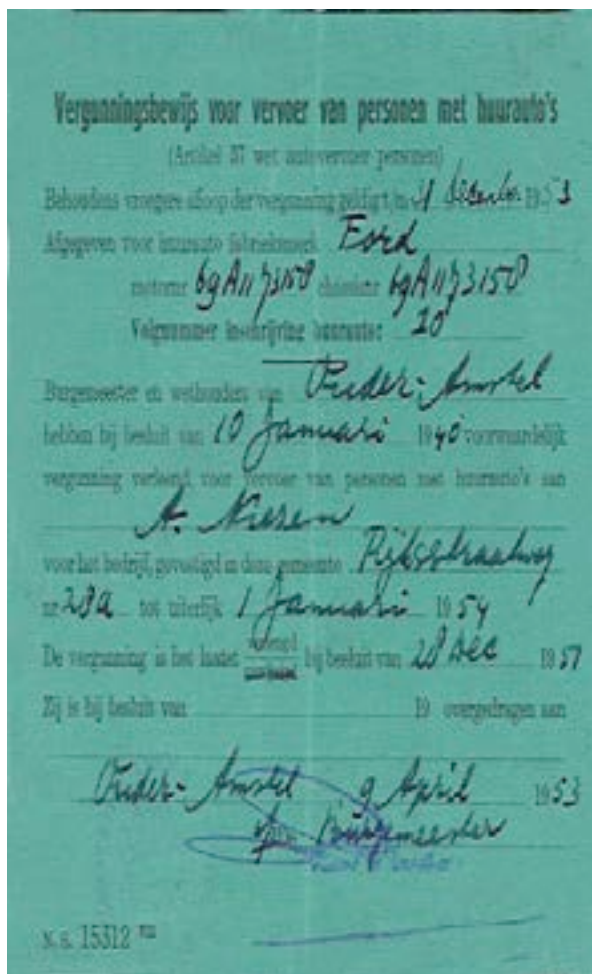 Vergunningsbewijs voor vervoer van personen met huurauto's
(Artikel 57 wet autovervoer personen)
Behoudens vroegere afloop der vergunning geldig t/m 31 December 1953
Afgegeven voor huurauto fabrieksmerk Ford
motornr 69A1173150 chassisnr 69A1173150
Volgnummer inschrijving huurauto: 20
Burgemeester en wethouders van Ouder-Amstel
hebben bij besluit van 10 Januari 1940 voorwaardelijk
vergunning verleend voor vervoer van personen met huurauto's aan
A. Niesen
voor het bedrijf, gevestigd in deze gemeente Rijksstraatweg
nr 28a tot uiterlijk 1 Januari 1954
De vergunning is het laatst verlengd bij besluit van 28 Dec 1951
Zij is bij besluit van 19 overgedragen aan
Ouder-Amstel 9 April 1953
Burgemeester
N.S. 15312